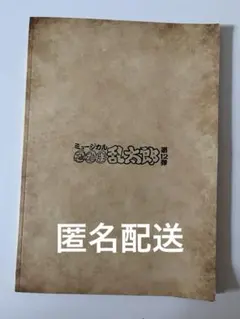 ミュージカル
忍たま乱太郎
第12弾
匿名配送